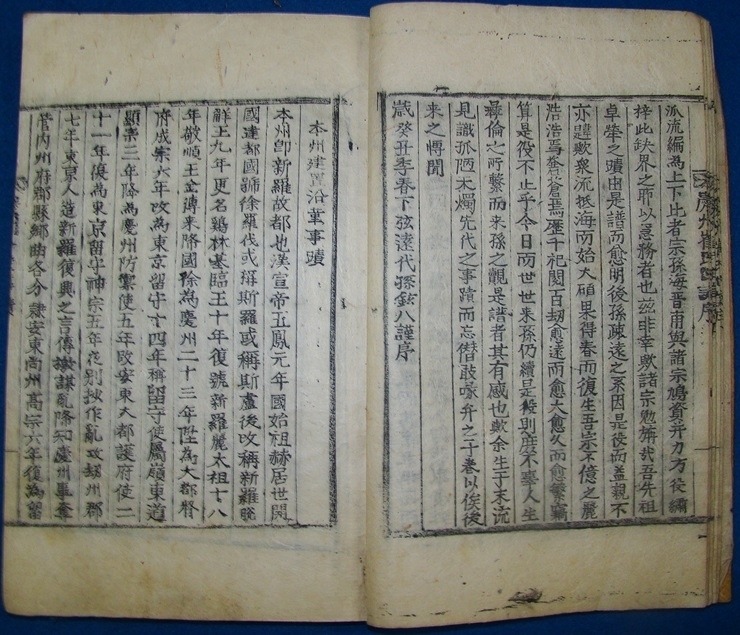 派流編為上下比者宗孫海晋甫與諸宗鳩資并力方從繡
梓此缺界之耶以急務者也茲非幸歟諸宗勉旃哉吾先祖
卓犖之蹟由是譜而愈明後孫疎遠之系因是役而益親不
亦韙歟衆流抵海而始大碩果得春而復生吾宗不億之麗
浩浩焉
千祀閱百刼愈遠而愈大愈久而愈繁竊
算是役不止乎今日而世世來孫仍續是役則
不奉人生
彛倫之所繫而來孫之覩是譜者其有感也歟余生于末流
見識孤陋未燭先代之事蹟而忘僭敢喙弁之于卷以俟後
來之博聞
歲癸丑季春下弦遠代孫鉉八謹序
慶州
譜序
本州建置沿革事蹟
本州卽新羅故都也漢宣帝五鳳元年國始祖赫居世開
國建都國號徐羅伐或稱斯羅或稱斯盧後改稱新羅脫
解王九年更名鷄林基臨王十年復號新羅麗太祖十八
年敬順王金傅來降國除為慶州二十三年陞為大都督
府成宗六年改為東京留守十四年稱留守使屬嶺東道
顯宗三年降為慶州防禦使五年改安東大都護府使二
十一年復為東京留守神宗五年夜別抄作亂攻刼州郡
七年東京人造新羅復興之言傳檄謀亂降知慶州事奪
管內州府郡縣鄕曲各分隷安東尙州高宗六年復為留